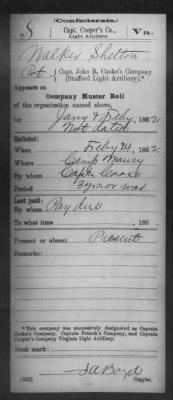 (Confederate.)
S Capt. Cooper's Co., Va.
Light Artillery.
Walker Shelton
Pvt., Capt. John R. Cooke's Company
(Stafford Light Artillery).
Appears on
Company Muster Roll
of the organization named above,
for Jany & Feby, 1862
Not dated
Enlisted:
When Feby 24, 1862
Where Camp Maury
By whom Capt. Cooke
Period 3 yrs or war
Last paid:
By whom Pay due
To what time , 186 .
Present or absent Present
Remarks:
*This company was successively designated as Captain
Cooke's Company, Captain French's Company, and Captain
Cooper's Company Virginia Light Artillery.
Book mark:
(642) J.A. Boyd
Copyist.